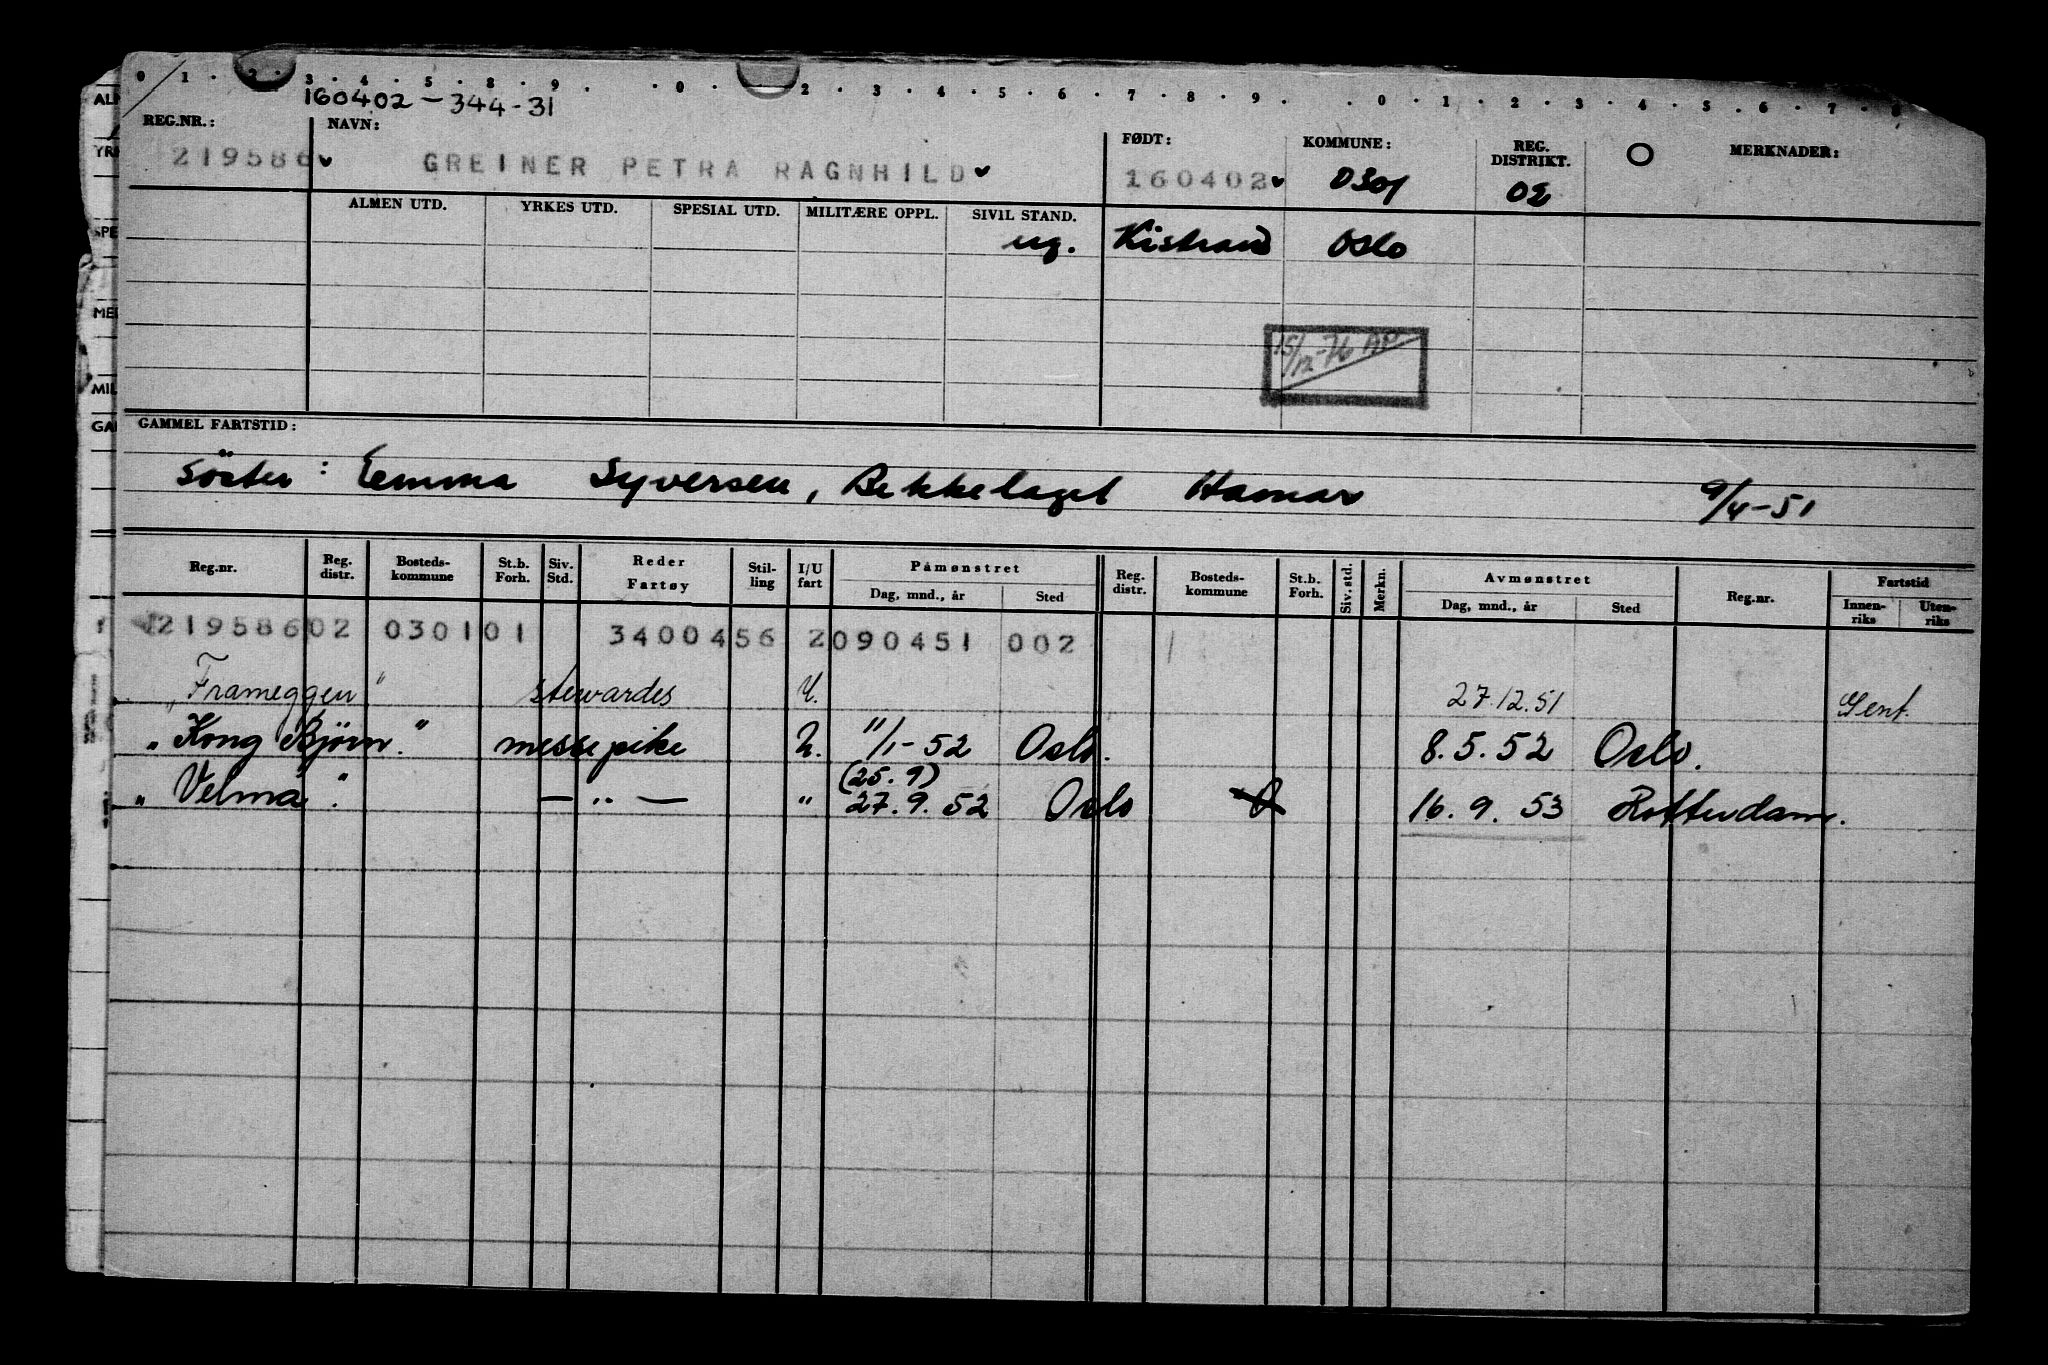 0 1 . 2 . 3 . 4 . 5 . 8 . 9 . . 0 . . 2 . 3 . 4 . 5 . 6 . 7 . 8 . 9 . . 0 . 1 . 2 . 3 . 4 . 5 . 6 . 7 . 8
160402-344-31
REG.NR.: NAVN: FØDT: KOMMUNE: REG. DISTRIKT. O MERKNADER:
219586 GREINER PETRA RAGNHILD 160402 0301 02
ALMEN UTD. YRKES UTD. SPESIAL UTD. MILITÆRE OPPL. SIVIL STAND.
ug. Kistrand Oslo
15/12-76 AP
GAMMEL FARTSTID:
söster: Emma Syversen, Bekkelaget Hamar 9/4-51
Reg.nr. Reg. distr. Bosteds-kommune St.b. Forh. Siv. Std. Reder Fartøy Stil-ling I/U fart Påmønstret Reg. distr. Bosteds-kommune St.b. Forh. Siv. std. Merkn. Avmønstret Reg.nr. Fartstid
Dag, mnd., år Sted Dag, mnd., år Sted Innen-riks Uten-riks
219586 02 0301 01 3400456 2 090451 002
"Frameggen" stewardes U. 27.12.51 Gent.
"Kong Bjørn." messepike U. 11/1-52 Oslo. 8.5.52 Oslo.
(25.9)
"Velma". — " — " 27.9.52 Oslo 16.9.53 Rotterdam.